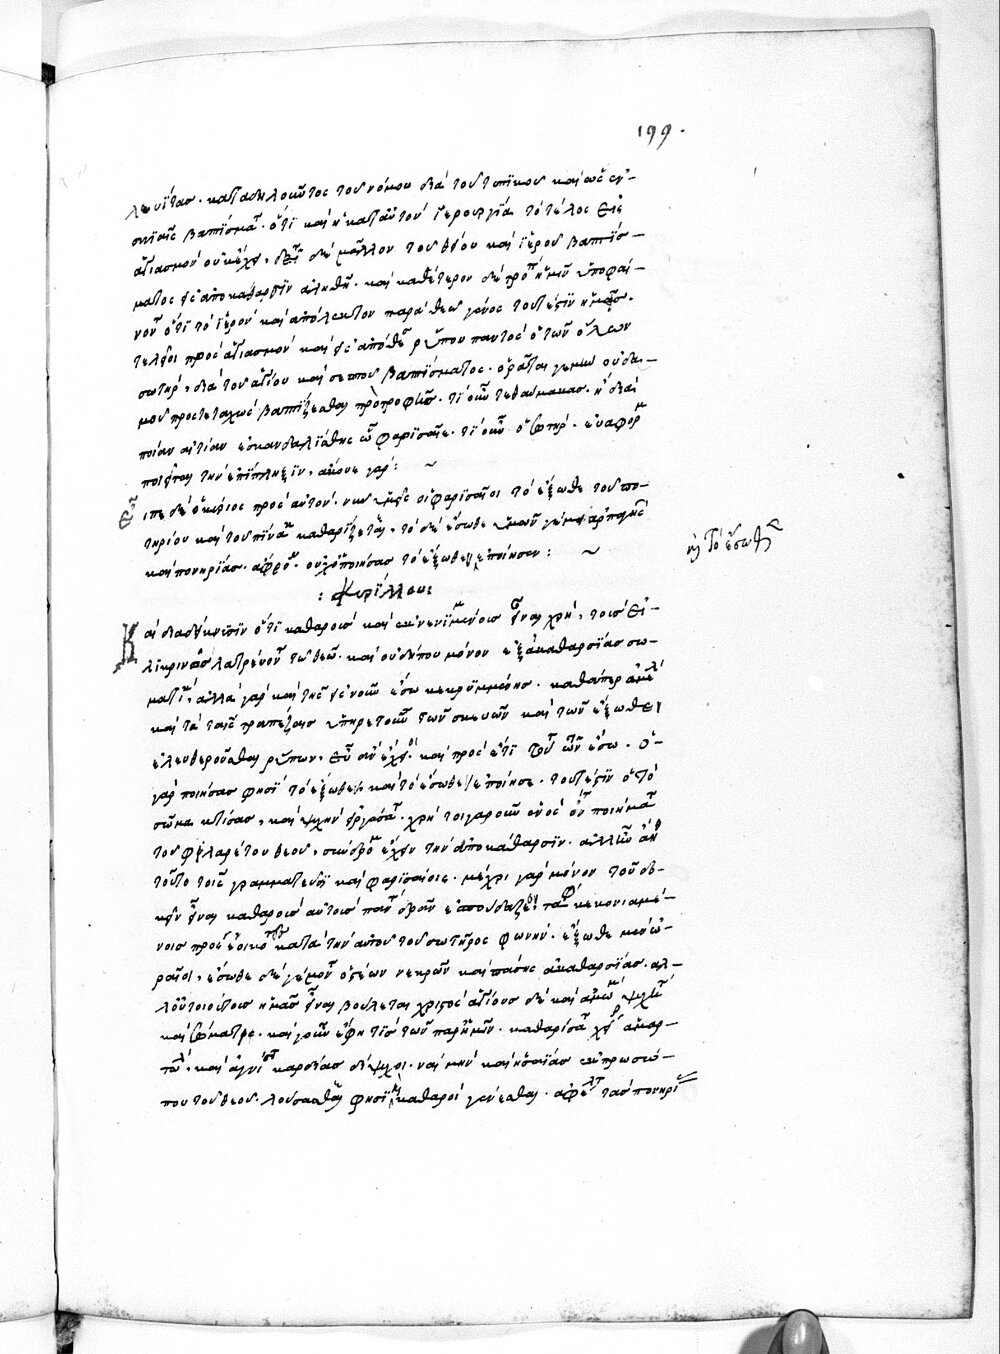 199.
λευΐτας. καταδηλοῦντος τοῦ νόμου διὰ τοῦ τυπικοῦ καὶ ὡς ἐν
σκιαῖς βαπτίσματος. ὅτι καὶ ἡ κατ' αὐτὸν ἱερουργία τὸ τέλος εἰς
ἁγιασμὸν οὐκ ἔχει, δεῖται δὲ μᾶλλον τοῦ θείου καὶ ἱεροῦ βαπτίσ-
ματος εἰς ἀποκάθαρσιν ἀληθῆ. καὶ καθ' ἕτερον δὲ τρόπον ἡμῖν ὑποφαί-
νοντος ὅτι τὸ ἱερὸν καὶ ἀπόλεκτον παρὰ θεῷ γένος τουτέστιν ἡμᾶς.
τελεῖ πρὸς ἁγιασμὸν καὶ εἰς ἀπόθεσιν ῥύπου παντὸς ὁ τῶν ὅλων
σωτήρ, διὰ τοῦ ἁγίου καὶ σεπτοῦ βαπτίσματος. ὁρᾶται γεμὴν οὐδα-
μοῦ προστεταχὼς βαπτίζεσθαι πρὸ τροφῆς. τί οὖν τεθαύμακας. ἢ διὰ
ποίαν αἰτίαν ἐσκανδαλίσθης ὦ φαρισαῖε. τί οὖν ὁ σωτήρ. εὐαφορμ
ποιεῖται τὴν ἐπίπληξιν, ἄκουε γάρ:
Εἶπε δὲ ὁ κύριος πρὸς αὐτόν. νῦν ὑμεῖς οἱ φαρισαῖοι τὸ ἔξωθεν τοῦ πο-
τηρίου καὶ τοῦ πίνακος καθαρίζετε, τὸ δὲ ἔσωθεν ὑμῶν γέμει ἁρπαγῆς
καὶ πονηρίας. ἄφρονες. οὐχ ὁ ποιήσας τὸ ἔξωθεν ἐποίησεν:
καὶ τὸ ἔσωθεν
: Κυρίλλου:
Καὶ
λικρινῶς λατρεύοντας τῷ θεῷ. καὶ οὐ δήπου μόνον ἐξ ἀκαθαρσίας σω-
ματικῆς, ἀλλὰ γὰρ καὶ τῆς εἰς νοῦν ἔσω κεκρυμμένης. καθάπερ ἀμέλει
καὶ τὰ ταῖς τραπέζαις ὑπηρετοῦντα τῶν σκευῶν καὶ τῶν ἔξωθεν
ἐλευθεροῦσθαι ῥύπων, καὶ πρὸς ἔτι τούτοις τῶν ἔσω. ὁ
γὰρ ποιήσας φησὶ τὸ ἔξωθεν καὶ τὸ ἔσωθεν ἐποίησε. τουτέστιν ὁ τὸ
σῶμα κτίσας, καὶ ψυχὴν εἰργάσατο. χρὴ τοιγαροῦν ἑνὸς ὄντα ποιήματα
τοῦ φιλαρέτου θεοῦ, σύνδρομον ἔχειν τὴν ἀποκάθαρσιν. ἀλλ' οὐκ ἦν
τοῦτο τοῖς γραμματεῦσι καὶ φαρισαίοις. μέχρι γὰρ μόνου τοῦ δο-
κεῖν εἶναι καθαροὶ αὐτοῖς πᾶν ὁρᾶν ἐσπουδάζετο. τάφοις κεκονιαμέ-
νοις προσεοικότες κατὰ τὴν αὐτοῦ τοῦ σωτῆρος φωνήν. ἔξωθεν μὲν ὡ-
ραῖοι, ἔσωθεν δὲ γέμοντες ὀστέων νεκρῶν καὶ πάσης ἀκαθαρσίας. ἀλ-
λ' οὐ τοιούτους ἡμᾶς εἶναι βούλεται χριστὸς ἁγίους δὲ καὶ ἀμώμους ψυχῇ
καὶ σώματι. καὶ γοῦν ἔφη τις τῶν παρ' ἡμῖν. καθαρίσατε χεῖρας ἁμαρ-
τωλοί. καὶ ἁγνίσατε καρδίας δίψυχοι. ναὶ μὴν καὶ ἡσαΐας ἐκ προσώ-
που τοῦ θεοῦ. λούσασθε φησὶ καὶ καθαροὶ γένεσθε. ἀφέλετε τὰς πονηρί